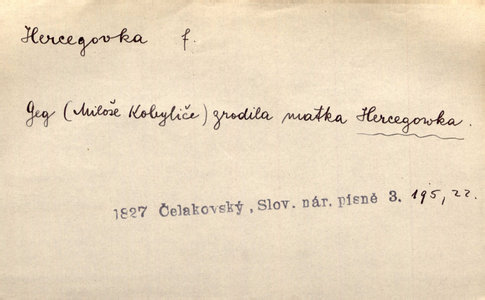 Hercegovka f.
Geg (Miloše Kobyliče) zrodila matka Hercegowka.
1827 Čelakovský, Slov. nár. písně 3. 195, 22.